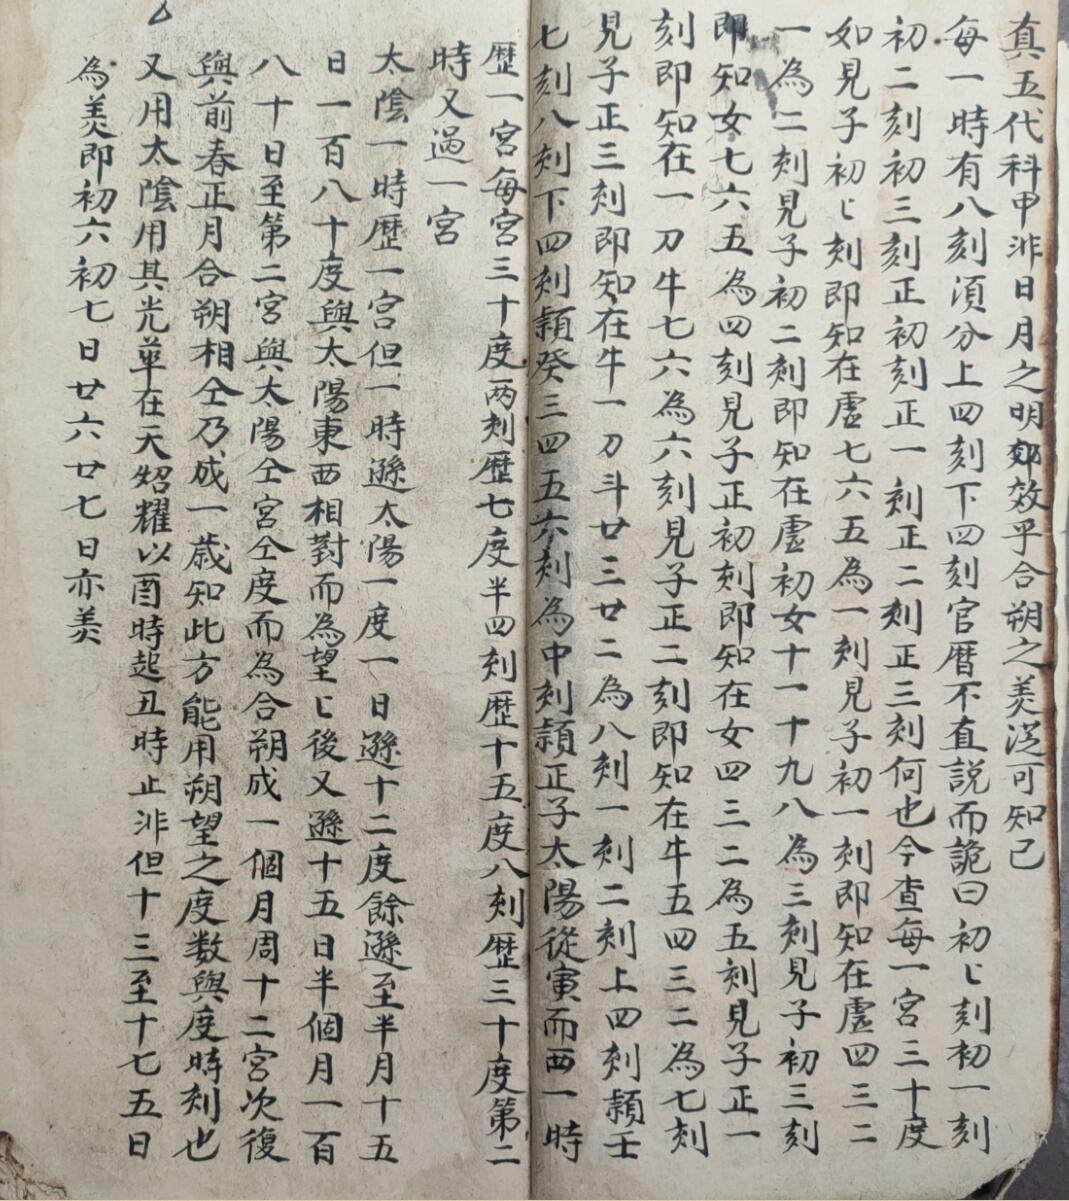 真五代科甲非日月之明郊效乎合朔之美從可知已
每一時有八刻須分上四刻下四刻官曆不直說而詭曰初ヒ刻初一刻
初二刻初三刻正初刻正一刻正二刻正三刻何也今查每一宮三十度
如見子初ヒ刻即知在虛七六五為一刻見子初一刻即知在虛四三二
一為二刻見子初二刻即知在虛初女十一十九八為三刻見子初三刻
即知女七六五為四刻見子正初刻即知在女四三二為五刻見子正一
刻即知在一刀牛七六為六刻見子正二刻即知在牛五四三二為七刻
見子正三刻即知在牛一刀斗廿三廿二為八刻一刻二刻上四刻頴壬
七刻八刻下四刻頴癸三四五六刻為中刻頴正子太陽從寅而西一時
歷一宮每宮三十度兩刻歷七度半四刻歷十五度八刻歷三十度第二
時又過一宮
太陰一時歷一宮但一時遜太陽一度一日遜十二度餘遜至半月十五
日一百八十度與太陽東西相對而為望ヒ後又遜十五日半個月一百
八十日至第二宮與太陽仝宮仝度而為合朔成一個月周十二宮次復
與前春正月合朔相仝乃成一歲知此方能用朔望之度数與度時刻也
又用太陰用其光華在天炤耀以酉時起丑時止非但十三至十七五日
為美即初六初七日廿六廿七日亦美